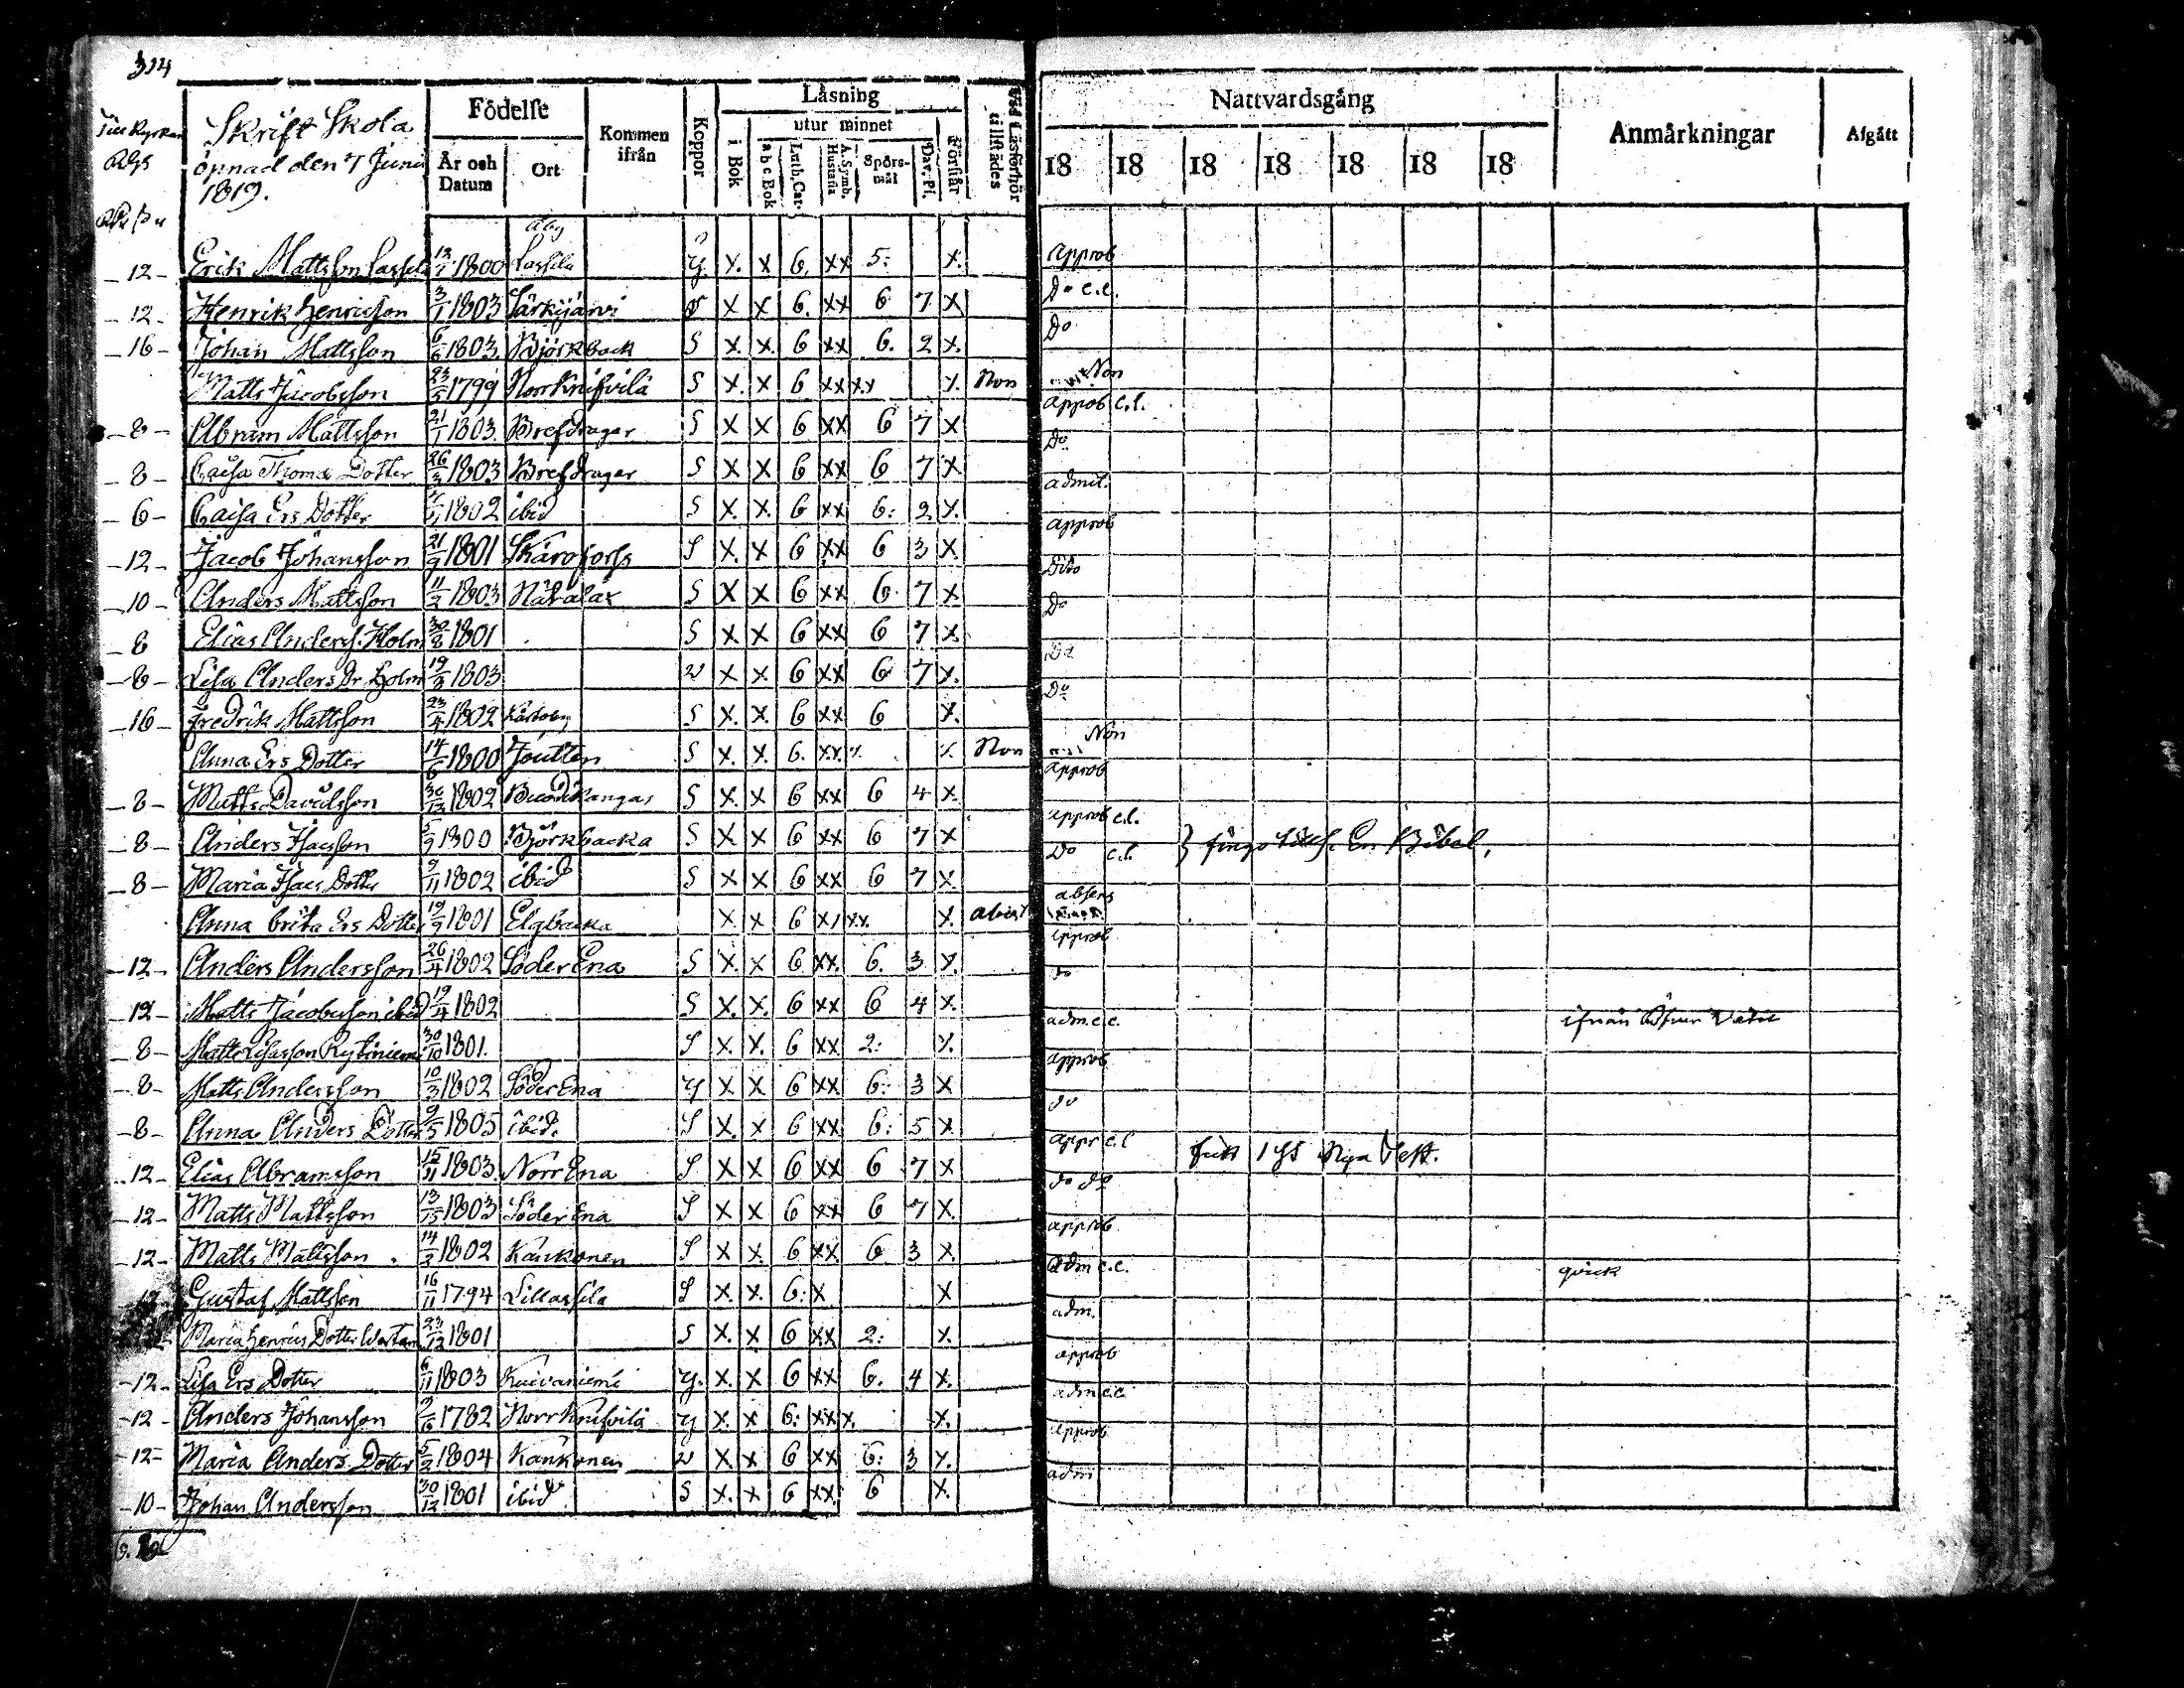 314
Skrift Skola
öpnad den 7 Juni
1819.
Födelse
År och Datum
Ort
Kommen ifrån
Koppor
Läsning
i Bok
utur minnet
a b c Bok
Luth. Cat.
A. Symb. Hustafla
Spörs-mål
Dav. Ps.
Förstår
Vid Läsförhör tillstädes
Nattvardsgång
18 18 18 18 18 18 18
Anmärkningar
Afgått
12 Erik Mattsson Lassila 1800 Lassila y. x. x 6. xx 5: x. approb
12 Henrik Henricsson 3/1 1803 Särkijärvi x x 6. xx 6 7 x Do c.l.
16 Johan Mattsson 6/6 1803 Björkback S x. x. 6 xx 6. 2 x. Do
Matts Jacobsson 23/5 1799 Norr Knifvilä S x. x 6 xx xx x. Non Non
8 Abram Mattsson 21/1 1803 Brefdragar S x x 6 xx 6 7 x approb c.l.
8 Caisa Thomæ Dotter 26/3 1803 Brefdragar S x x 6 xx 6 7 x Do
6 Caisa Ers Dotter 1802 ibid S x. x. 6 xx 6: 2 x. admit.
12 Jacob Johansson 21/9 1801 S x. x 6 xx 6 3 x approb
10 Anders Mattsson 11/2 1803 S x x 6 xx 6 7 x Dito
8 Elias Anderss. Holm 30/8 1801 S x. x 6 xx 6 7 x Do
8 Lisa Anders Dr Holm 19/3 1803 v x x 6 xx 6 7 x. Do
16 Fredrik Mattsson 23/4 1802 S x. x. 6 xx 6 x. Do
Anna Ers Dotter 14/6 1800 Joutten S x. x. 6. xx x x Non Non
8 Matts Davidsson 30/12 1802 S x. x 6 xx 6 4 x approb
8 Anders Isacsson 1800 Björkbacka S x x 6 xx 6 7 x approb c.l.
8 Maria Isacs Dotter 9/11 1802 ibid S x x 6 xx 6 7 x Do c.l. } fingo Bibel,
Anna Brita Ers Dotter 19/9 1801 Elgbacka x x 6 xx xx x absens
12 Anders Andersson 26/4 1802 Söder Ena S x. x 6 xx. 6. 3 x. approb
12 Matts Jacobsson ibid 19/4 1802 S x. x. 6 xx 6 4 x. do
8 Matts 30/10 1801. S x. x. 6 xx 2: x. adm. c.c. ifrån
8 Matts Andersson 10/3 1802 Söder Ena y x x 6 xx 6: 3 x approb
8 Anna Anders Dotter 9/5 1805 ibid. S x. x 6 xx 6: 5 x do
12 Elias Abramsson 15/11 1803 Norr Ena S x x 6 xx 6 7 x appr c.l fått Nya Test.
12 Matts Mattsson 1803 Söder Ena S x x 6 xx 6 7 x. do do
12 Matts Mattsson 14/3 1802 Kankonen S x x. 6 xx 6 3 x. approb
Gustaf Mattsson 16/11 1794 Lillassila S x. x. 6: x x adm c.c. qvick
Maria Henrics Dotter 23/12 1801 S x. x 6 xx 2: x. adm.
12 Lisa Ers Dotter 6/11 1803 Kuivaniemi y. x. x 6 xx 6. 4 x. approb
12 Anders Johansson 9/6 1782 Norr Knifvilä y x. x 6: xx x. x. adm c.c
12 Maria Anders Dotter 5/2 1804 Kankonen v x. x 6 xx 6: 3 x. approb
10 Johan Andersson 30/12 1801 ibid S x. x 6 xx 6 x. adm